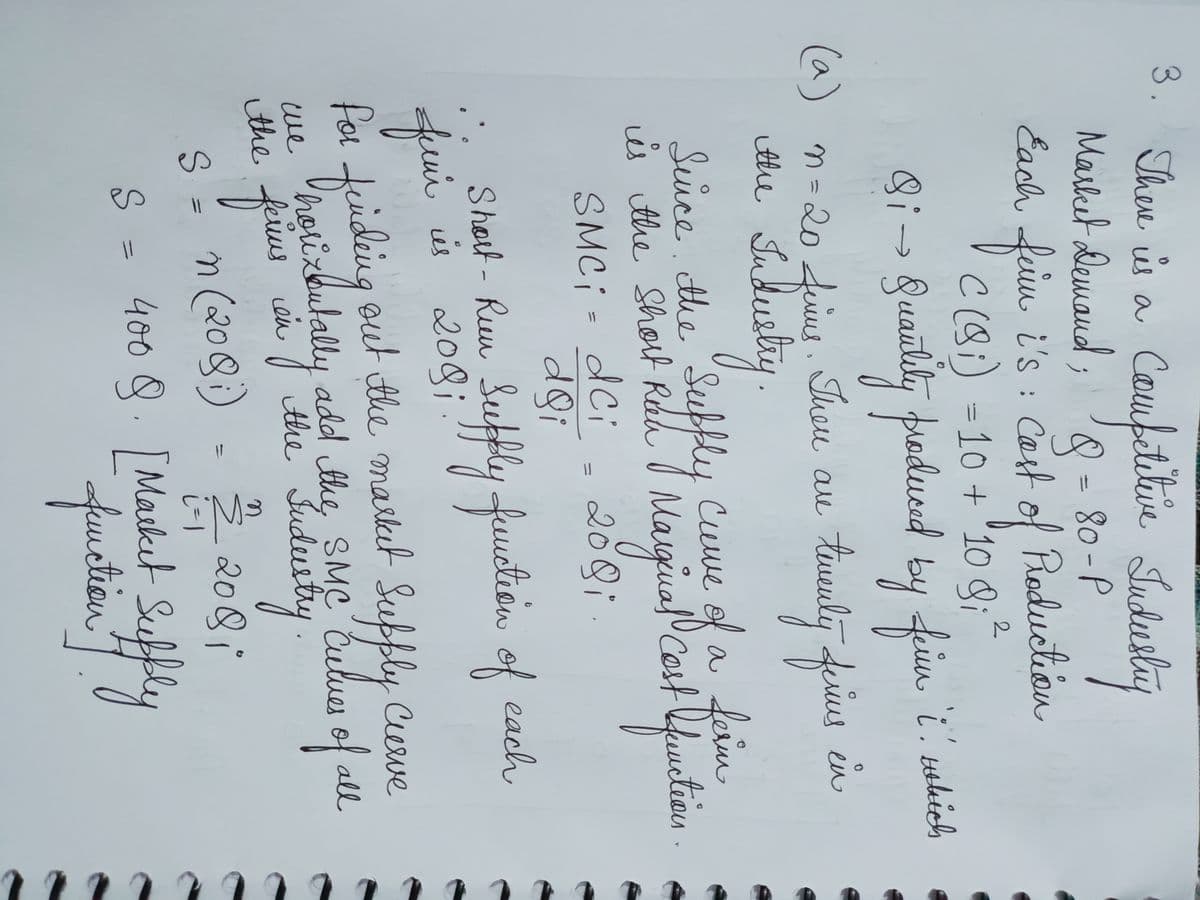 3. There is a Competitive Industry
Market Demand; Q = 80 - P
Each firm i's : Cost of Production
C(Qi) = 10 + 10 Qi²
Qi → Quantity produced by firm 'i'. which
(a) n = 20 firms. There are twenty-firms in
the Industry.
Since the Supply Curve of a firm
is the Short Run Marginal Cost function.
SMCi = dCi/dQi = 20Qi.
∴ Short-Run Supply function of each
firm is 20Qi.
For finding out the market Supply Curve
we horizontally add the SMC Curves of all
the firms in the Industry.
S = n(20Qi) = n Σ i=1 20Qi
S = 400 Q. [Market Supply
function].